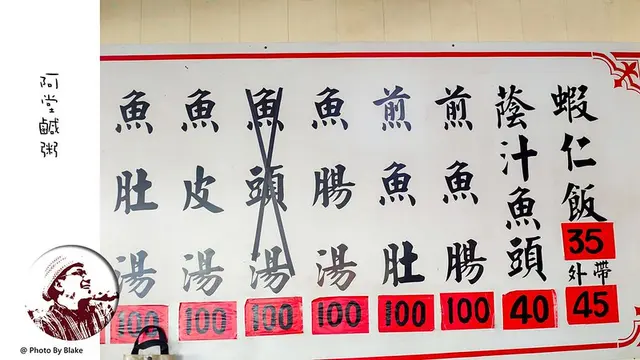 阿堂鹹粥
蝦仁飯
35
外帶
45
蔭汁魚頭
40
煎魚腸
100
煎魚肚
100
魚腸湯
100
魚頭湯
100
魚皮湯
100
魚肚湯
100
@ Photo By Blake